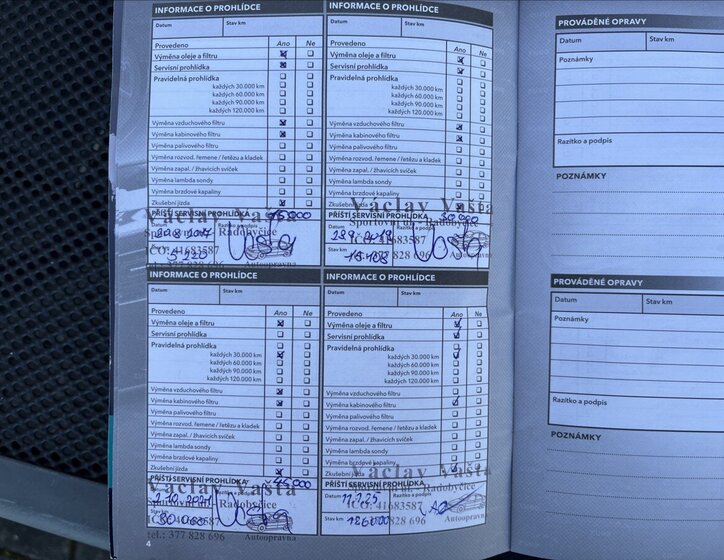 INFORMACE O PROHLÍDCE
Datum
Stav km
Provedeno
Ano
Ne
Výměna oleje a filtru
Servisní prohlídka
Pravidelná prohlídka
každých 30.000 km
každých 60.000 km
každých 90.000 km
každých 120.000 km
Výměna vzduchového filtru
Výměna kabinového filtru
Výměna palivového filtru
Výměna rozvod. řemene / řetězu a kladek
Výměna zapal. / žhavicích svíček
Výměna lambda sondy
Výměna brzdové kapaliny
Zkušební jízda
Václav Vašta
PŘÍŠTÍ SERVISNÍ PROHLÍDKA
Radobyčice
Razítko a podpis
IČO: 41683587
377 828 696
Autoopravna
INFORMACE O PROHLÍDCE
Datum
Stav km
Provedeno
Ano
Ne
Výměna oleje a filtru
Servisní prohlídka
Pravidelná prohlídka
každých 30.000 km
každých 60.000 km
každých 90.000 km
každých 120.000 km
Výměna vzduchového filtru
Výměna kabinového filtru
Výměna palivového filtru
Výměna rozvod. řemene / řetězu a kladek
Výměna zapal. / žhavicích svíček
Výměna lambda sondy
Výměna brzdové kapaliny
Zkušební jízda
Václav Vašta
PŘÍŠTÍ SERVISNÍ PROHLÍDKA 30.000
Sportovní ul. - Radobyčice
Razítko a podpis
Stav km
828 696
INFORMACE O PROHLÍDCE
Datum
Stav km
Provedeno
Ano
Ne
Výměna oleje a filtru
Servisní prohlídka
Pravidelná prohlídka
každých 30.000 km
každých 60.000 km
každých 90.000 km
každých 120.000 km
Výměna vzduchového filtru
Výměna kabinového filtru
Výměna palivového filtru
Výměna rozvod. řemene / řetězu a kladek
Výměna zapal. / žhavicích svíček
Výměna lambda sondy
Výměna brzdové kapaliny
Zkušební jízda
PŘÍŠTÍ SERVISNÍ PROHLÍDKA 45000
Václav Vašta
Razítko a podpis
Radobyčice
2.10.2021
Stav km
30 000
tel.: 377 828 696
Autoopravna
INFORMACE O PROHLÍDCE
Datum
Stav km
Provedeno
Ano
Ne
Výměna oleje a filtru
Servisní prohlídka
Pravidelná prohlídka
každých 30.000 km
každých 60.000 km
každých 90.000 km
každých 120.000 km
Výměna vzduchového filtru
Výměna kabinového filtru
Výměna palivového filtru
Výměna rozvod. řemene / řetězu a kladek
Výměna zapal. / žhavicích svíček
Výměna lambda sondy
Výměna brzdové kapaliny
Zkušební jízda
Václav Vašta
PŘÍŠTÍ SERVISNÍ PROHLÍDKA
Radobyčice
Razítko a podpis
IČO: 41683587
Stav km
828 696
Autoopravna
4
PROVÁDĚNÉ OPRAVY
Datum
Stav km
Poznámky
Razítko a podpis
POZNÁMKY
PROVÁDĚNÉ OPRAVY
Datum
Stav km
Poznámky
Razítko a podpis
POZNÁMKY